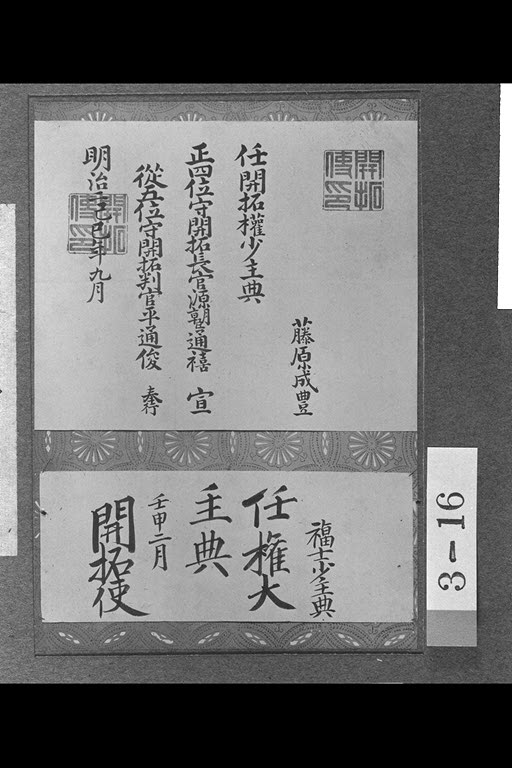 開拓使印
藤原成豊
任開拓權少主典
正四位守開拓長官源朝臣通禧 宣
從五位守開拓判官平通俊 奉行
明治二己巳年九月
開拓使印
福士少主典
任権大
主典
壬申二月
開拓使
3-16